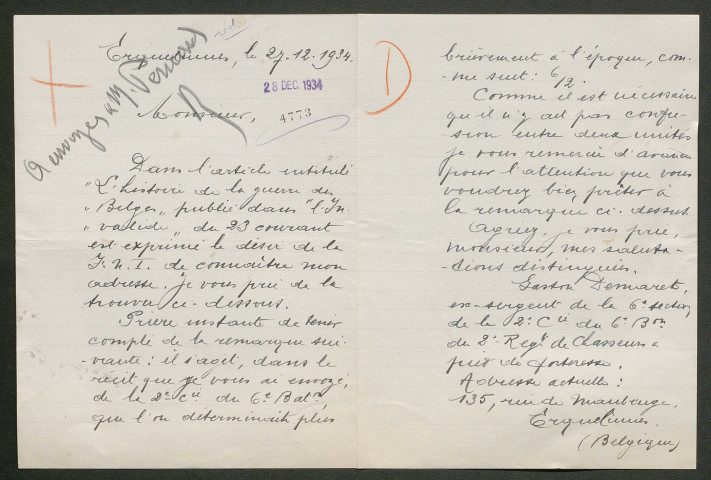 Erquelinnes, le 27-12-1934.
28 DEC. 1934
4773
A envoyer à M.
Monsieur,
Dans l'article intitulé
"L'histoire de la guerre des
"Belges", publié dans "l'In-
"valide" du 23 courant
est exprimé le désir de la
F.N.I. de connaître mon
adresse. Je vous prie de la
trouver ci-dessous.
Prière instante de tenir
compte de la remarque sui-
-vante : il s'agit, dans le
récit que je vous ai envoyé,
de la 2e Cie du 6e Baton,
que l'on déterminait plus
D
brièvement à l'époque, com-
-me suit : 6/2.
Comme il est nécessaire
qu'il n'y ait pas confu-
-sion entre deux unités
je vous remercie d'avance
pour l'attention que vous
voudrez bien prêter à
la remarque ci-dessus.
Agréez, je vous prie,
Monsieur, mes saluta-
-tions distinguées.
Gaston Demaret,
ex-sergent de la 6e section
de la 2e Cie du 6e Bon
du 2e Regt de Chasseurs à
pied de forteresse.
Adresse actuelle :
135, rue de Maubeuge.
Erquelinnes
(Belgique)